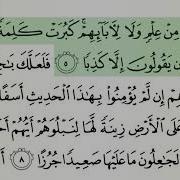 مِنْ عِلْمٍ وَلَا لِأَبَآئِهِمْ ۚ كَبُرَتْ كَلِمَةً
يَقُولُونَ إِلَّا كَذِبًا ٥ فَلَعَلَّكَ
إِن لَّمْ يُؤْمِنُوا۟ بِهَـٰذَا ٱلْحَدِيثِ أَسَفًا
عَلَى ٱلْأَرْضِ زِينَةً لَّهَا لِنَبْلُوَهُمْ أَيُّهُمْ
لَجَـٰعِلُونَ مَا عَلَيْهَا صَعِيدًا جُرُزًا ٨